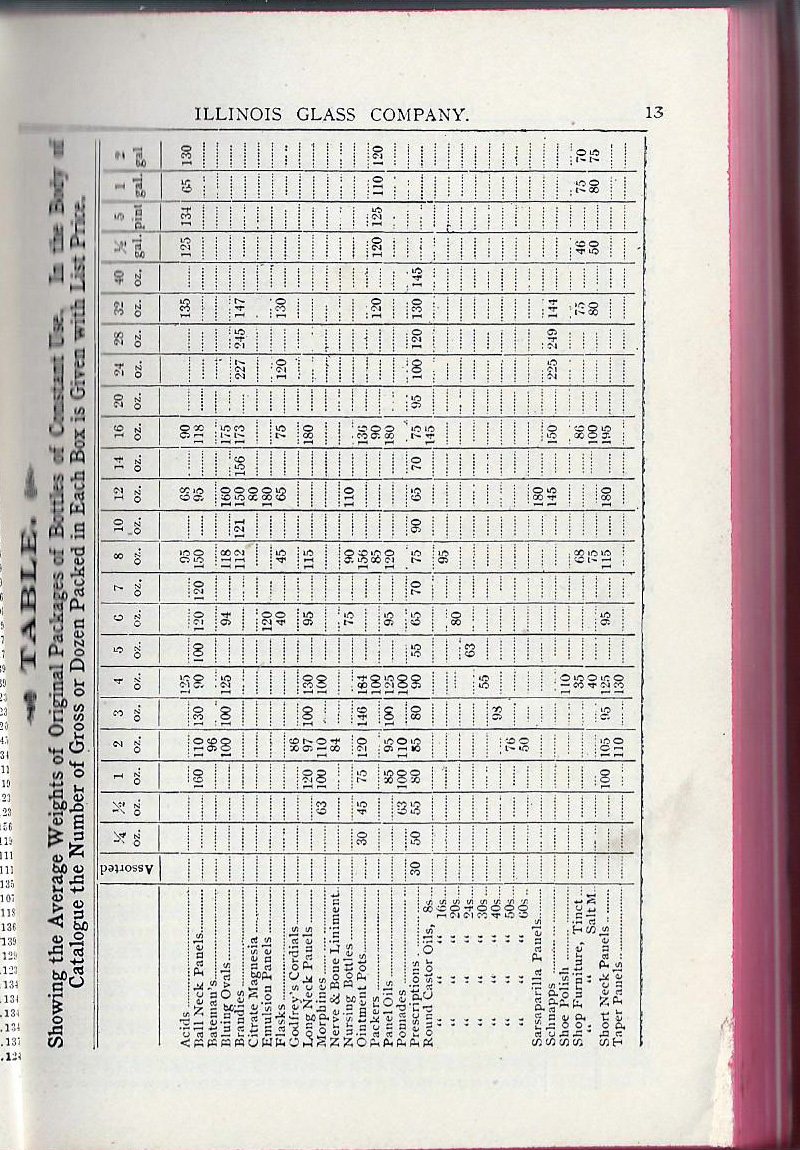 ILLINOIS GLASS COMPANY. 13
TABLE.
Showing the Average Weights of Original Packages of Bottles of Constant Use. In the Body of
Catalogue the Number of Gross or Dozen Packed in Each Box is Given with List Price.
Assorted ¼ oz. ½ oz. 1 oz. 2 oz. 3 oz. 4 oz. 5 oz. 6 oz. 7 oz. 8 oz. 10 oz. 12 oz. 14 oz. 16 oz. 20 oz. 24 oz. 28 oz. 32 oz. 40 oz. ½ gal. 5 pint 1 gal. 2 gal
Acids 125 95 68 90 135 125 134 65 130
Ball Neck Panels 160 110 130 90 100 120 120 150 95 118
Bateman's 96
Bluing Ovals 100 100 125 94 118 160 175
Brandies 112 121 150 156 173 227 245 147
Citrate Magnesia 80
Emulsion Panels 120 180
Flasks 40 45 65 75 120 130
Godfrey's Cordials 86
Long Neck Panels 120 97 100 130 95 115 180
Morphines 63 100 110 100
Nerve & Bone Liniment 84
Nursing Bottles 75 90 110
Ointment Pots 30 45 75 120 146 184 156 136
Packers 100 85 90 120 120 125 110 120
Panel Oils 85 95 100 125 95 120 180
Pomades 63 100 110 100
Prescriptions 30 50 55 80 85 80 90 55 65 70 75 90 65 70 75 95 100 120 130 145
Round Castor Oils, 8s 145
" " " 16s 95
" " " 20s 80
" " " 24s 63
" " " 30s 55
" " " 40s 98
" " " 50s 76
" " " 60s 50
Sarsaparilla Panels 180
Schnapps 145 150 225 249 144
Shoe Polish 110
Shop Furniture, Tinct 35 68 86 75 46 75 70
" " Salt M 40 75 100 80 50 80 75
Short Neck Panels 100 105 95 125 95 115 180 195
Taper Panels 110 130